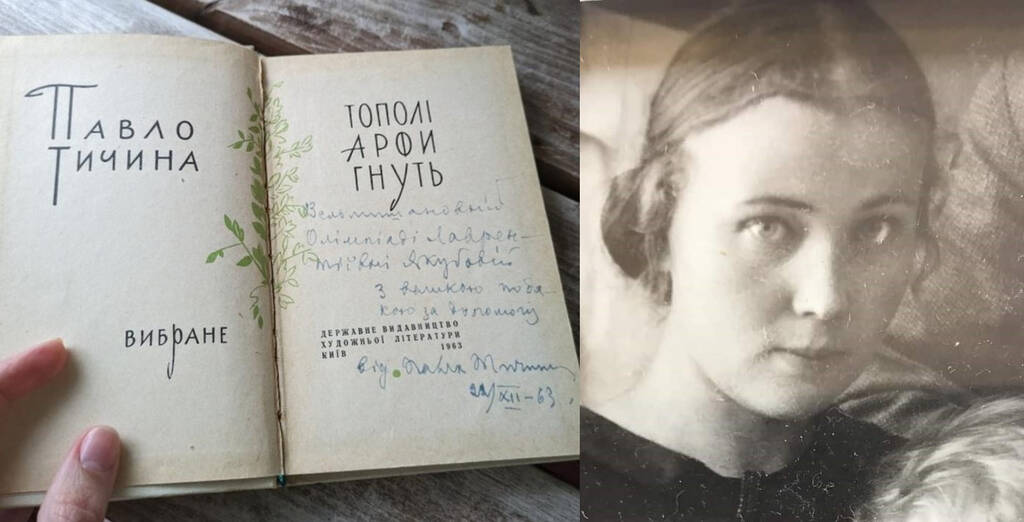 ПАВЛО
ТИЧИНА
ВИБРАНЕ
ТОПОЛІ
АРФИ
ГНУТЬ
Вельмишановній
Олімпіаді Лаврен-
тіївні Якубовій
з великою подя-
кою за допомогу
ДЕРЖАВНЕ ВИДАВНИЦТВО
ХУДОЖНЬОЇ ЛІТЕРАТУРИ
КИЇВ 1963
від Павла Тичини
22/XII–63